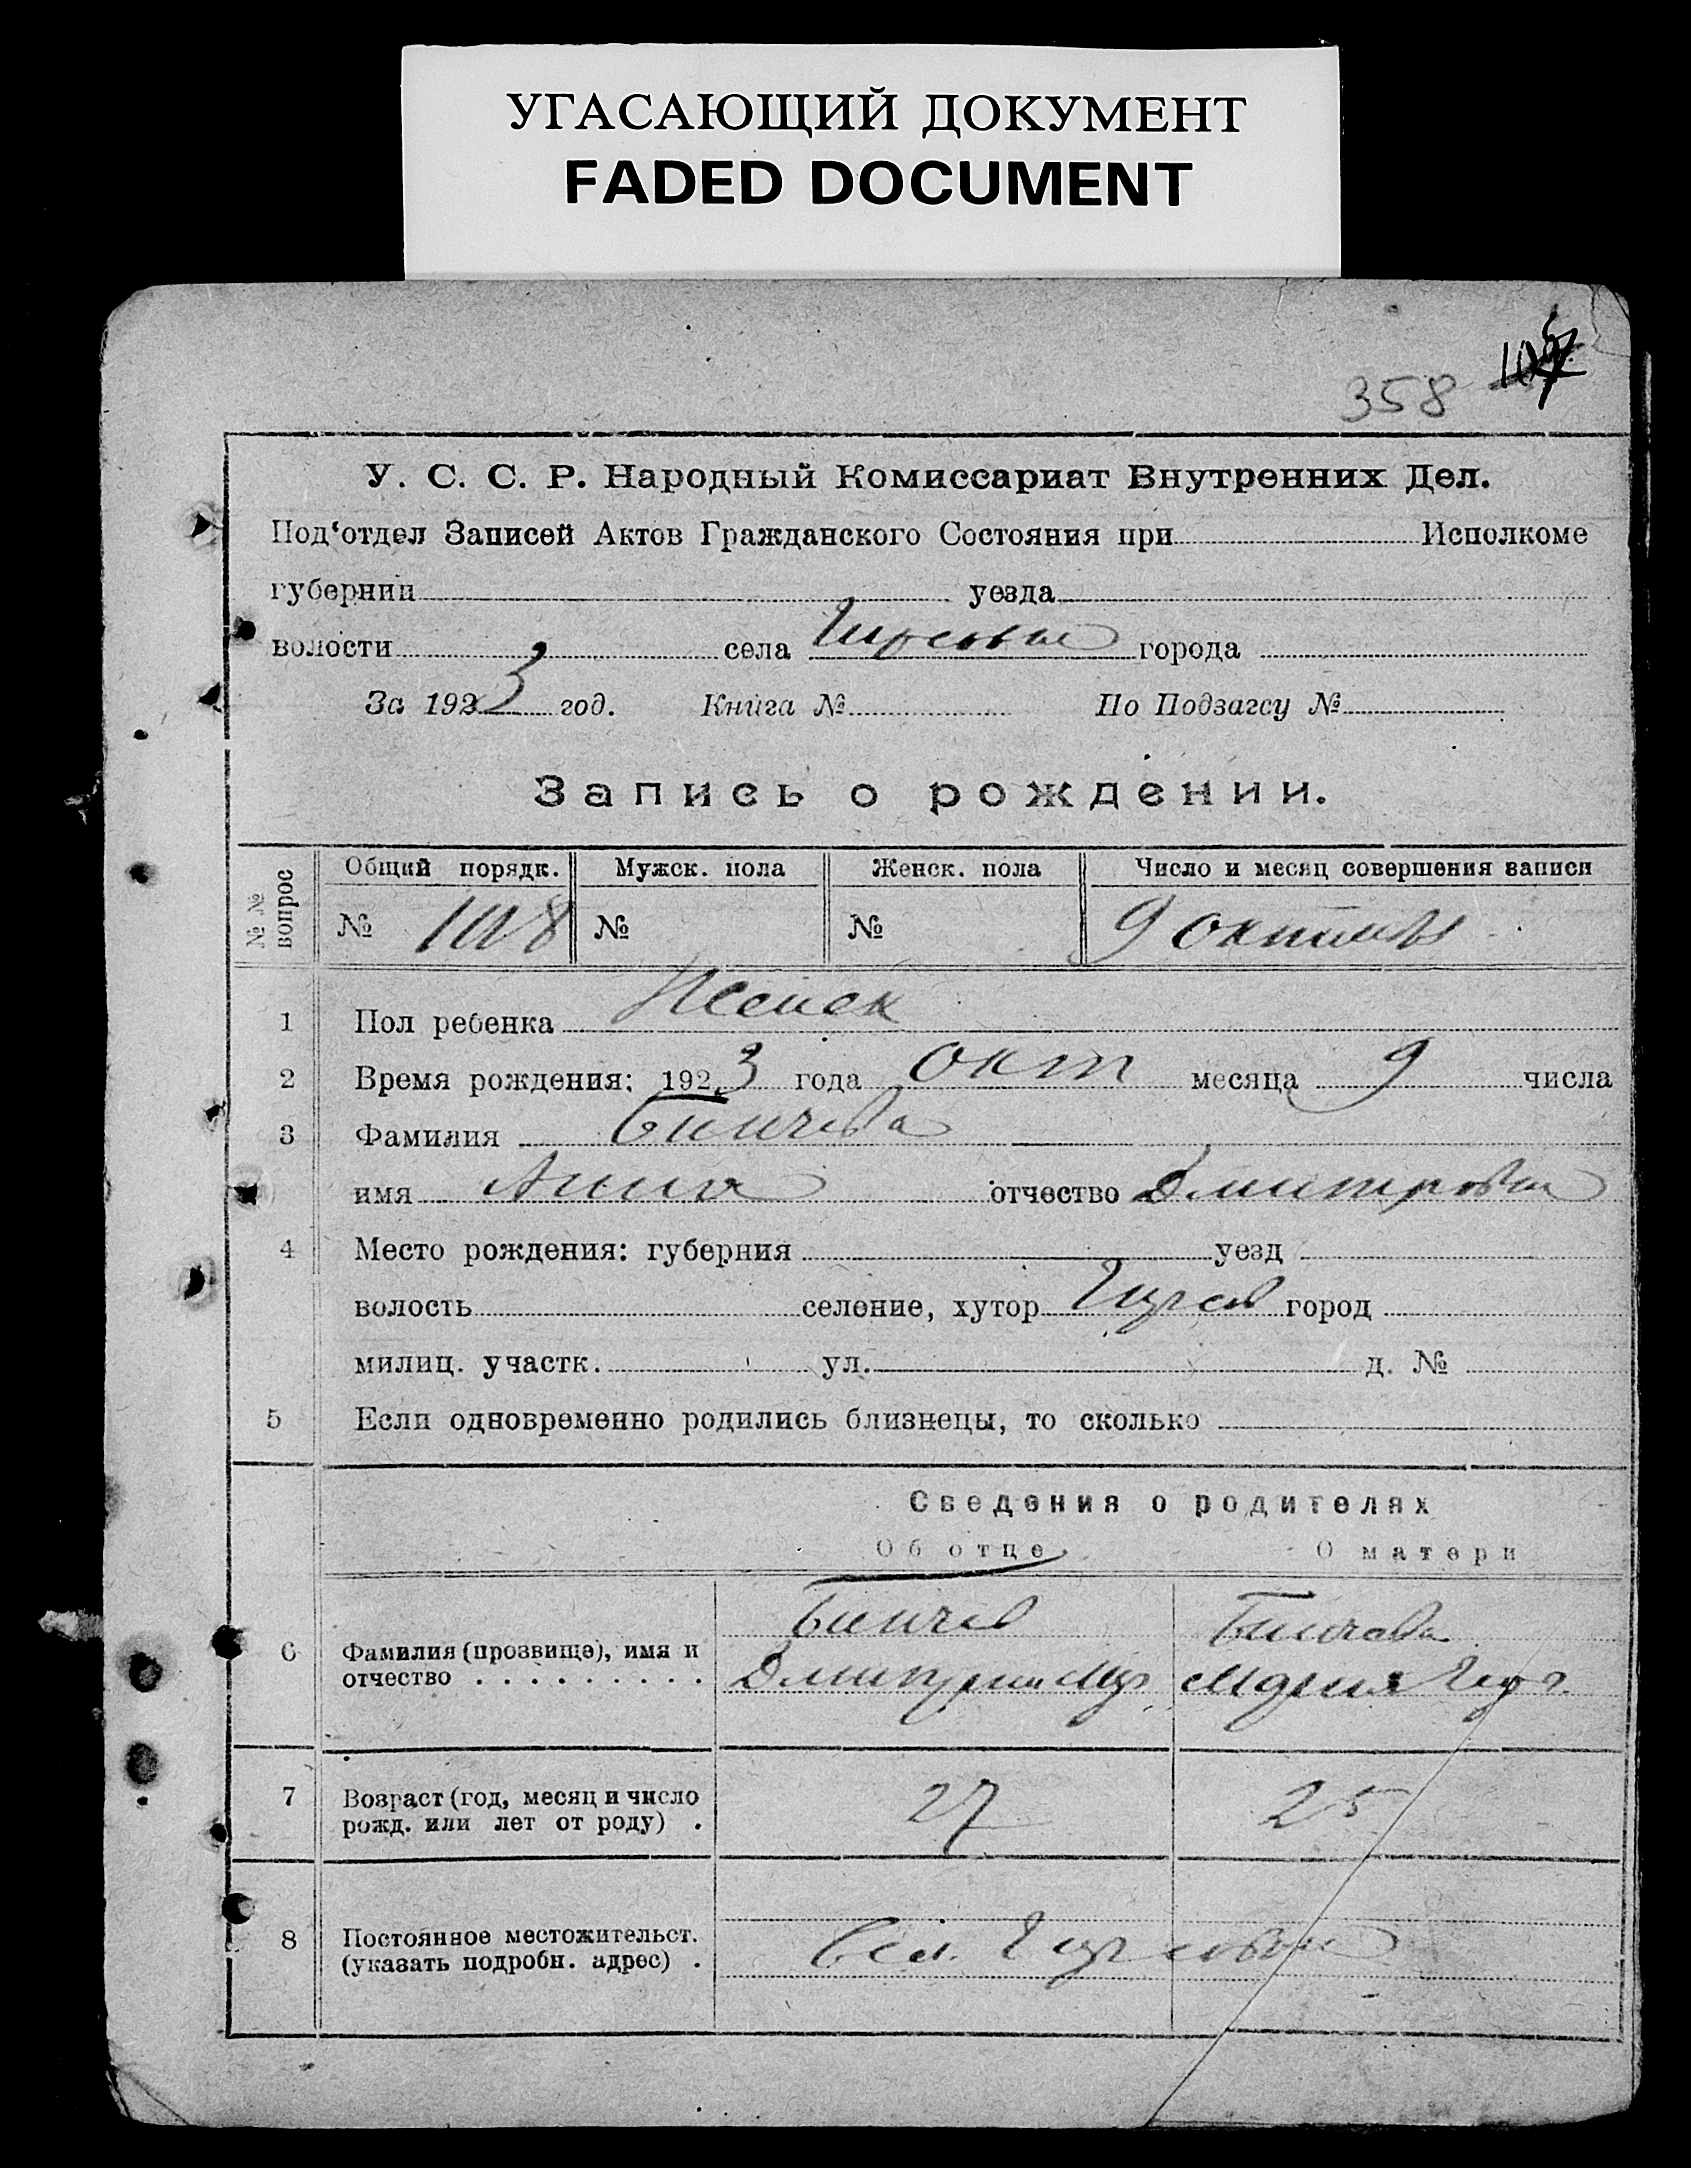 УГАСАЮЩИЙ ДОКУМЕНТ
FADED DOCUMENT
358
У. С. С. Р. Народный Комиссариат Внутренних Дел.
Под‘отдел Записей Актов Гражданского Состояния при Исполкоме
губернии уезда
волости села города
За 1923 год. Книга № По Подзагсу №
Запись о рождении.
№ № вопрос
Общий порядк. Мужск. пола Женск. пола Число и месяц совершения записи
№ 108 № № 9 октября
1 Пол ребенка Женск
2 Время рождения: 1923 года окт месяца 9 числа
3 Фамилия Бинчева
имя Анна отчество Дмитровна
4 Место рождения: губерния уезд
волость селение, хутор город
милиц. участк. ул. д. №
5 Если одновременно родились близнецы, то сколько
Сведения о родителях
Об отце О матери
Бинчев Бинчева
6 Фамилия (прозвище), имя и
отчество . . . . . . . . . Дмитрий Мария
7 Возраст (год, месяц и число
рожд. или лет от роду) . 27 25
8 Постоянное местожительст.
(указать подробн. адрес) . Сел.